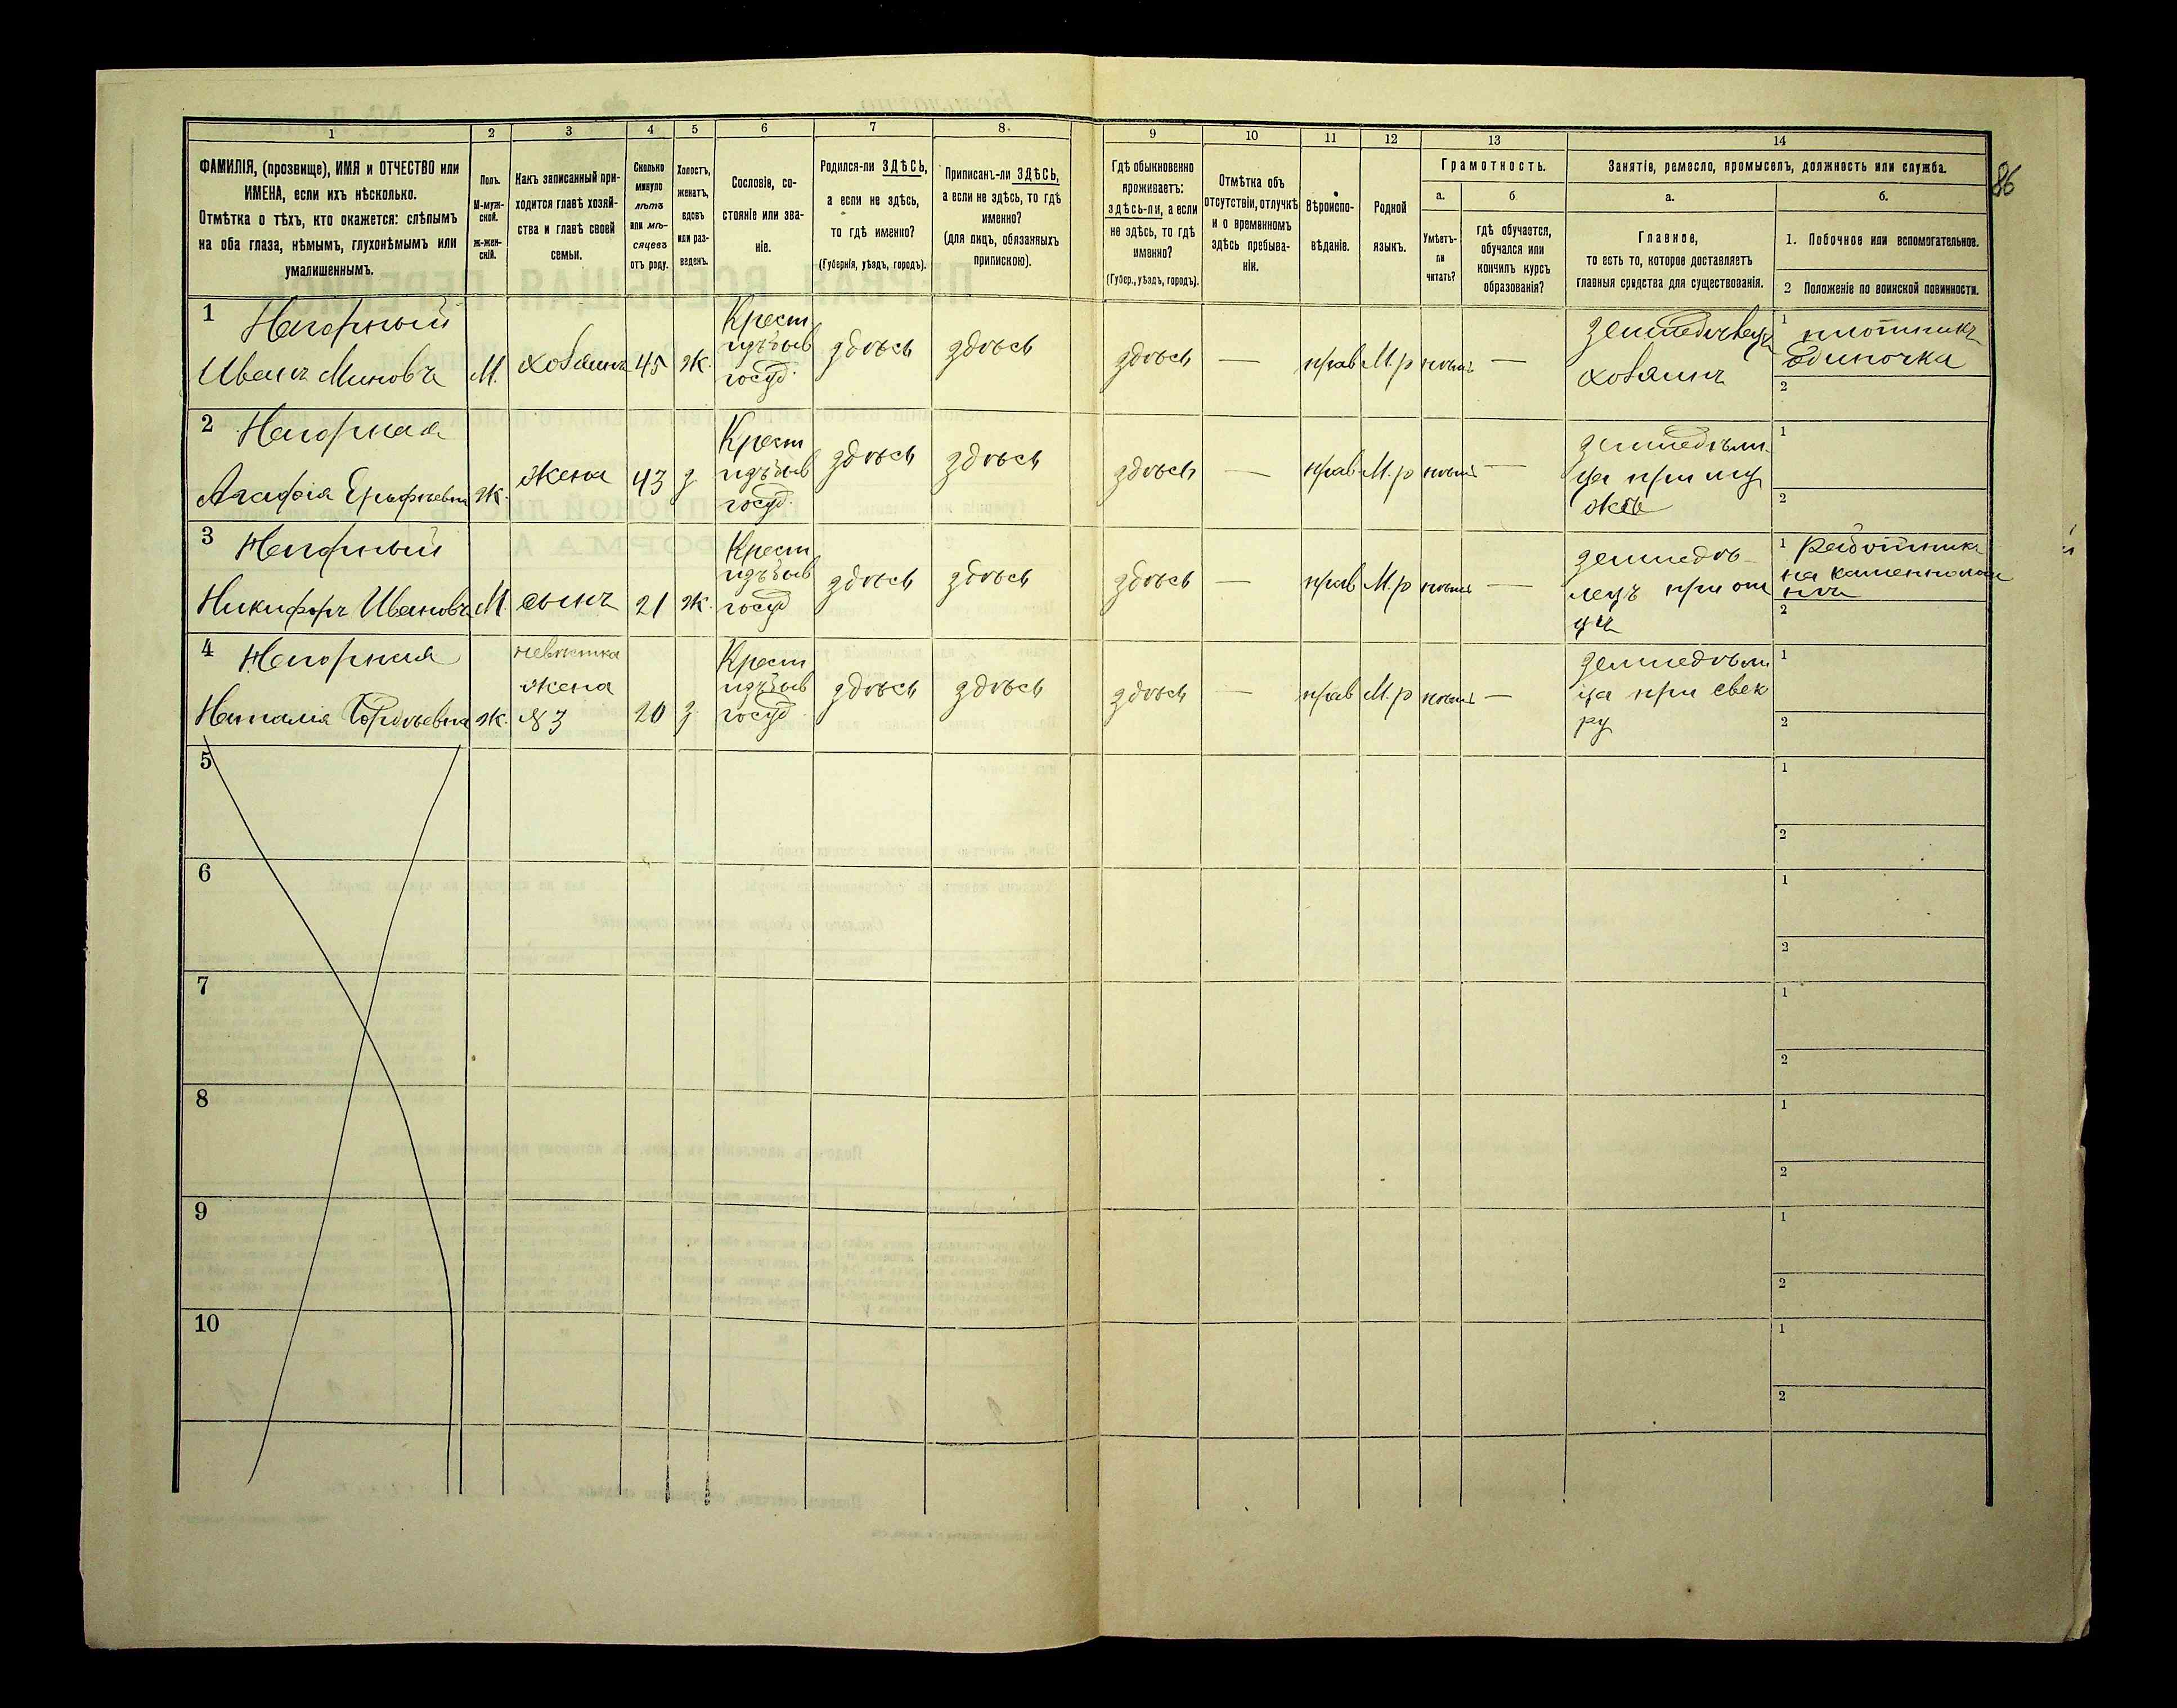 86
1
ФАМИЛІЯ, (прозвище), ИМЯ и ОТЧЕСТВО или
ИМЕНА, если ихъ нѣсколько.
Отмѣтка о тѣхъ, кто окажется: слѣпымъ
на оба глаза, нѣмымъ, глухонѣмымъ или
умалишеннымъ.
2
Полъ.
М-муж-
ской.
ж-жен-
скій.
3
Какъ записанный при-
ходится главѣ хозяй-
ства и главѣ своей
семьи.
4
Сколько
минуло
лѣтъ
или мѣ-
сяцевъ
отъ роду.
5
Холостъ,
женатъ,
вдовъ
или раз-
веденъ.
6
Сословіе, со-
стояніе или зва-
ніе.
7
Родился-ли ЗДѢСЬ,
а если не здѣсь,
то гдѣ именно?
(Губернія, уѣздъ, городъ).
8.
Приписанъ-ли ЗДѢСЬ,
а если не здѣсь, то гдѣ
именно?
(для лицъ, обязанныхъ
припискою).
9
Гдѣ обыкновенно
проживаетъ:
здѣсь-ли, а если
не здѣсь, то гдѣ
именно?
(Губер., уѣздъ, городъ).
10
Отмѣтка объ
отсутствіи, отлучкѣ
и о временномъ
здѣсь пребыва-
ніи.
11
Вѣроиспо-
вѣданіе.
12
Родной
языкъ.
13
Грамотность.
а.
Умѣетъ-
ли
читать?
б
гдѣ обучается,
обучался или
кончилъ курсъ
образованія?
14
Занятія, ремесло, промыселъ, должность или служба.
а.
Главное,
то есть то, которое доставляетъ
главныя средства для существованія.
б.
1. Побочное или вспомогательное.
2 Положеніе по воинской повинности.
1 Нагорный
Иванъ Миновъ
М.
хозяинъ
45
ж.
Крест
госуд.
здѣсь
здѣсь
здѣсь
—
прав
М.р
нѣтъ
—
хозяинъ
1 плотникъ
одиночка
2
2 Нагорная
Агафія
ж.
жена
43
з
Крест
госуд.
здѣсь
здѣсь
здѣсь
—
прав.
М.р
нѣтъ
—
земледѣли
ца при му
жѣ
1
2
3 Нагорный
Никифоръ Ивановъ
М.
сынъ
21
ж.
Крест
госуд
здѣсь
здѣсь
здѣсь
—
прав
М.р
нѣтъ
—
земледѣ-
лецъ при от
цѣ
1 Работникъ
на каменоло
2
4 Нагорная
Наталія
ж.
невѣстка
жена
№3
20
з
Крест
госуд
здѣсь
здѣсь
здѣсь
—
прав
М.р
нѣтъ
—
земледѣли
ца при свек
ру
1
2
5
1
2
6
1
2
7
1
2
8
1
2
9
1
2
10
1
2